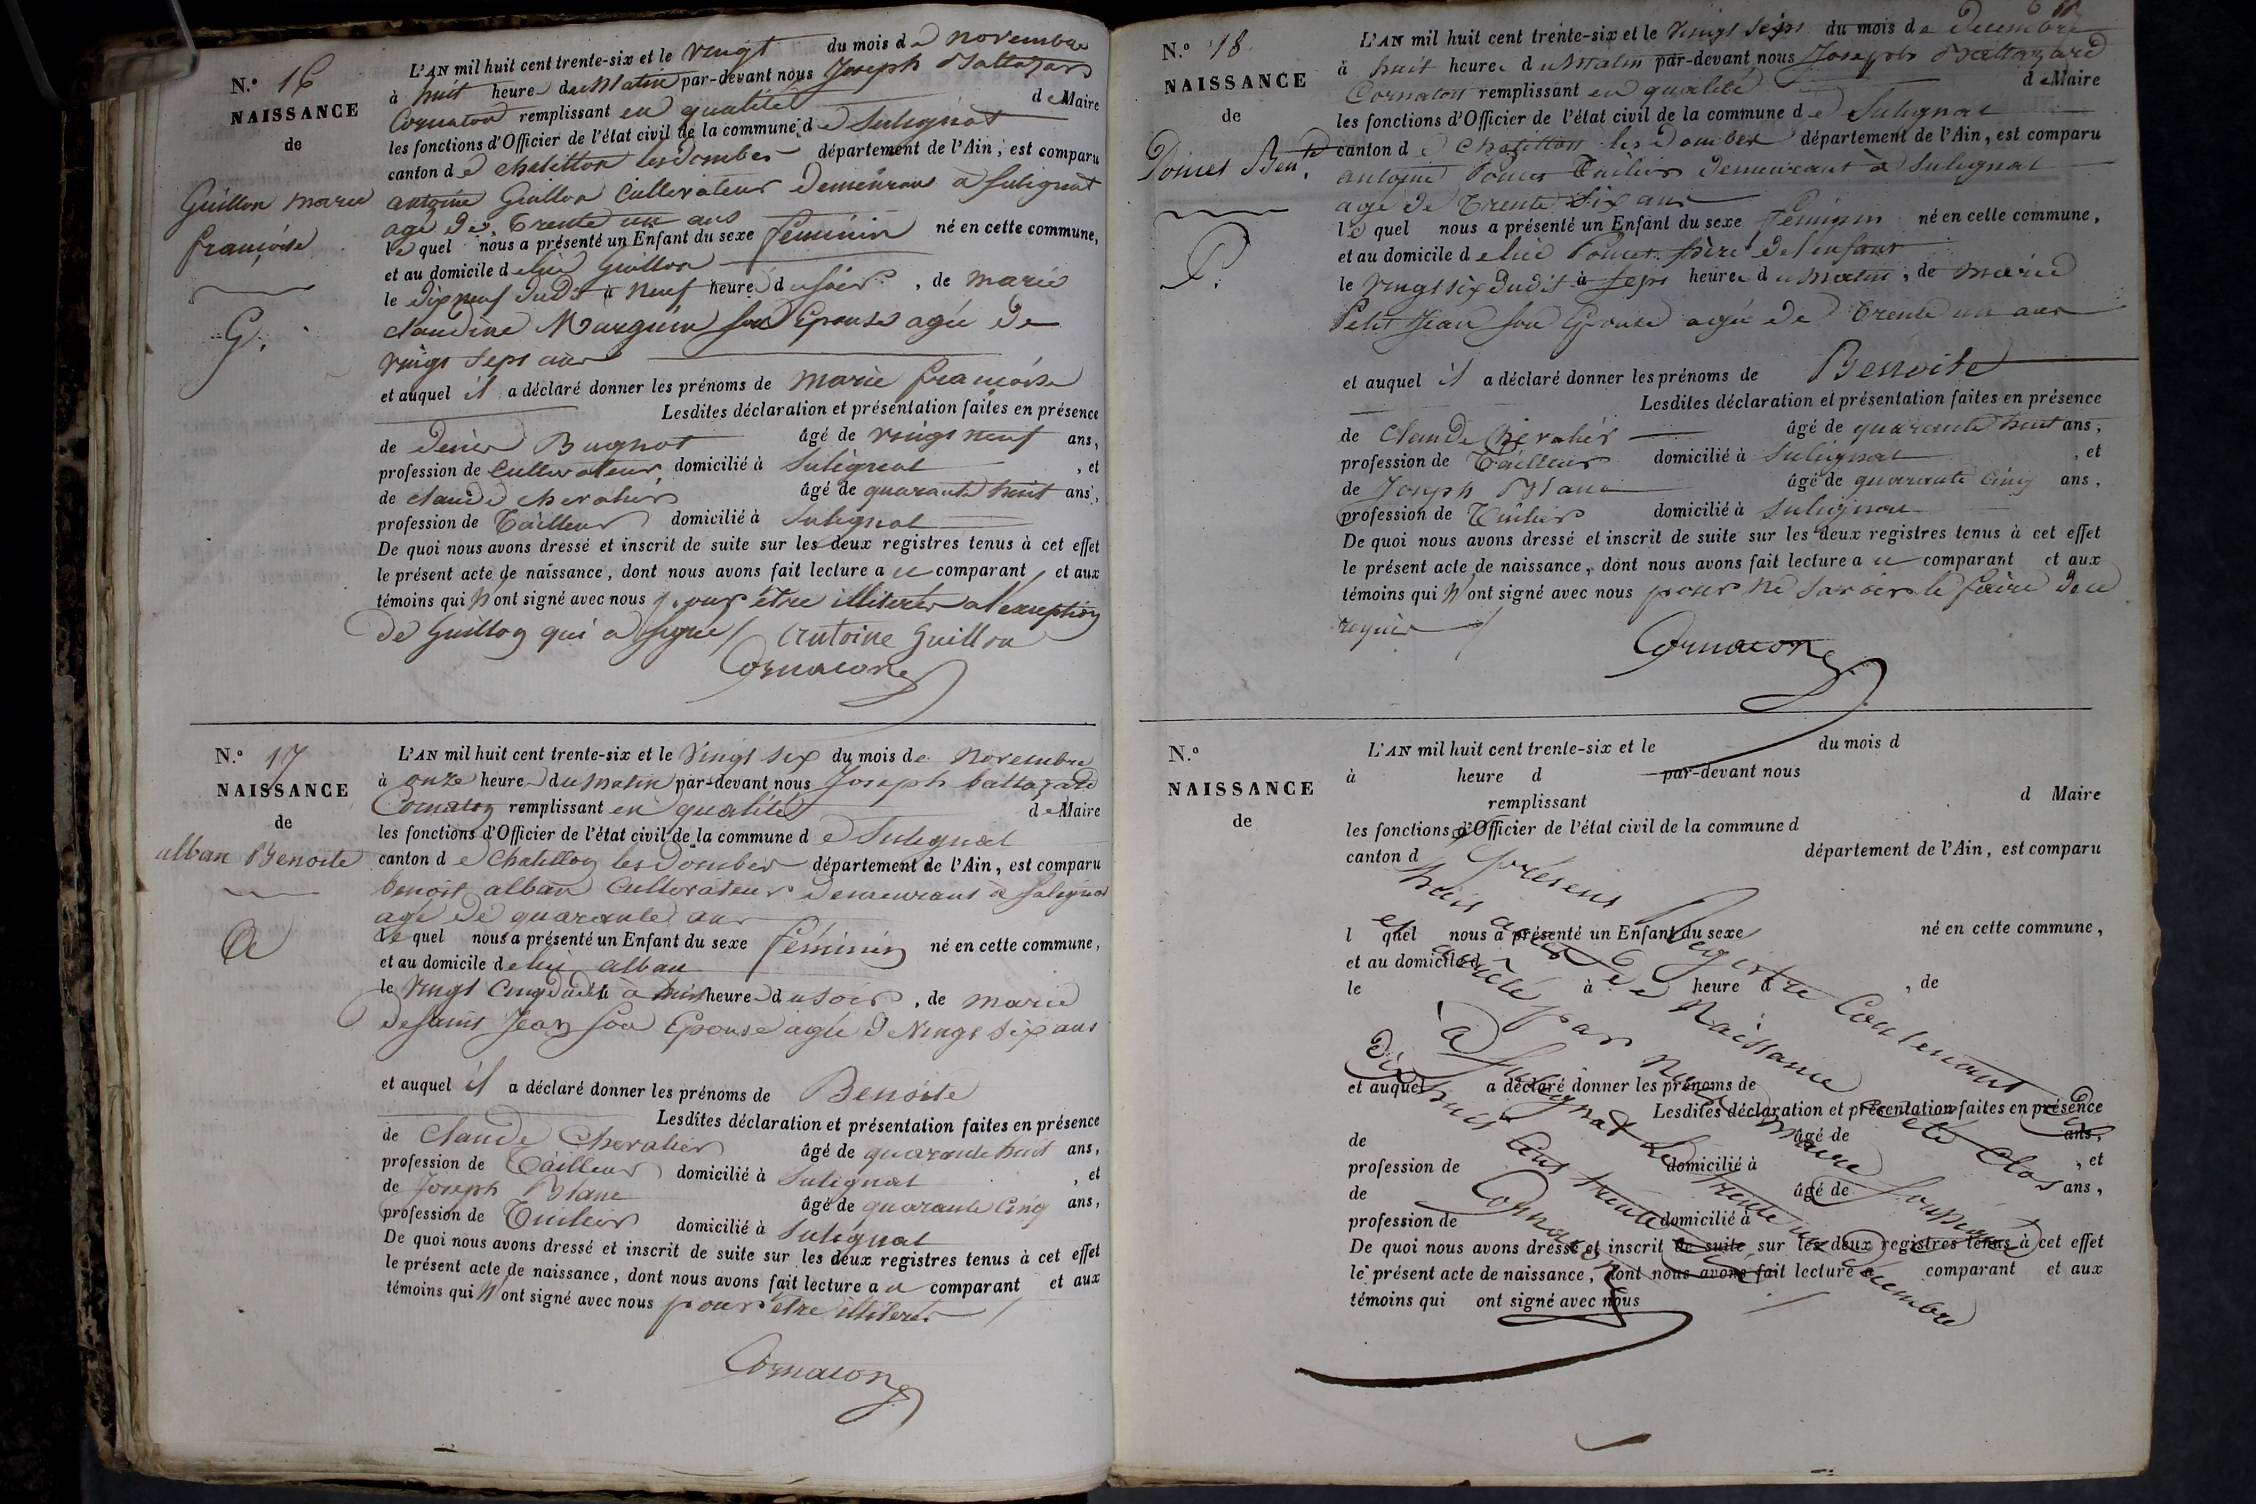 N.° 16
NAISSANCE
de
Guillon marie
françoise
G.
L'AN mil huit cent trente-six et le vingt du mois de novembre
à huit heure du Matin par-devant nous Joseph Baltazard
Cornaton remplissant en qualité de Maire
les fonctions d'Officier de l'état civil de la commune de Suligniat
canton de chatillon les dombes département de l'Ain, est comparu
antoine Guillon Cultivateur demeurant à Sulignat
agé de trente un ans
le quel nous a présenté un Enfant du sexe féminin né en cette commune,
et au domicile de lui Guillon
le dix neuf dudt à neuf heure du soir, de marie
claudine Marguin son Epouse agée de
vingt sept ans
et auquel il a déclaré donner les prénoms de marie françoise
Lesdites déclaration et présentation faites en présence
de denis Bugnot âgé de vingt neuf ans,
profession de Cultivateur, domicilié à Suligniat, et
de claude chevalier âgé de quarante huit ans,
profession de Tailleur domicilié à Sulignat
De quoi nous avons dressé et inscrit de suite sur les deux registres tenus à cet effet
le présent acte de naissance, dont nous avons fait lecture a u comparant et aux
témoins qui n'ont signé avec nous pour être illiterés al'exception
de Guillon qui a signé / Antoine Guillon
Cornaton
N.° 17
NAISSANCE
de
alban Benoite
A
L'AN mil huit cent trente-six et le vingt six du mois de novembre
à onze heure du Matin par-devant nous Joseph baltazard
Cornaton remplissant en qualité de Maire
les fonctions d'Officier de l'état civil de la commune de Sulignat
canton de Chatillon les Dombes département de l'Ain, est comparu
benoit alban Cultivateur demeurant à Sulignat
agé de quarante ans
Le quel nous a présenté un Enfant du sexe féminin né en cette commune,
et au domicile de lui alban
le vingt cinq dudit à huit heure du soir, de marie
desaint Jean son Epouse agée de vingt six ans
et auquel il a déclaré donner les prénoms de Benoite
Lesdites déclaration et présentation faites en présence
de Claude Chevalier âgé de quarante huit ans,
profession de Tailleur domicilié à Sulignat, et
de Joseph Blanc âgé de quarante cinq ans,
profession de Tuilier domicilié à Sulignat
De quoi nous avons dressé et inscrit de suite sur les deux registres tenus à cet effet
le présent acte de naissance, dont nous avons fait lecture a u comparant et aux
témoins qui n'ont signé avec nous pour être illiterés /
Cornaton
N.° 18
NAISSANCE
de
Poncet Ben.te
P.
L'AN mil huit cent trente-six et le vingt sept du mois de decembre
à huit heure du Matin par-devant nous Joseph Baltazard
Cornaton remplissant en qualité de Maire
les fonctions d'Officier de l'état civil de la commune de Sulignat
canton de Chatillon les Dombes département de l'Ain, est comparu
antoine Poncet Tuilier demeurant à Sulignat
agé de trente six ans
le quel nous a présenté un Enfant du sexe féminin né en cette commune,
et au domicile de lui Poncet père de l'enfant
le vingt six dudit à sept heure du matin, de marie
Petit Jean son Epouse agée de trente un ans
et auquel il a déclaré donner les prénoms de Benoite
Lesdites déclaration et présentation faites en présence
de Claude Chevalier âgé de quarante huit ans,
profession de Tailleur domicilié à Sulignat, et
de Joseph Blanc âgé de quarante cinq ans,
profession de Tuilier domicilié à Sulignat
De quoi nous avons dressé et inscrit de suite sur les deux registres tenus à cet effet
le présent acte de naissance, dont nous avons fait lecture a u comparant et aux
témoins qui n'ont signé avec nous pour ne savoir le faire de ce
requis /
Cornaton
N.°
NAISSANCE
de
L'AN mil huit cent trente-six et le du mois d
à heure d par-devant nous
remplissant d Maire
les fonctions d'Officier de l'état civil de la commune d
canton d département de l'Ain, est comparu
l quel nous a présenté un Enfant du sexe né en cette commune,
et au domicile d
le à heure d, de
et auquel a déclaré donner les prénoms de
Lesdites déclaration et présentation faites en présence
de âgé de ans,
profession de domicilié à, et
de âgé de ans,
profession de domicilié à
De quoi nous avons dressé et inscrit de suite sur les deux registres tenus à cet effet
le présent acte de naissance, dont nous avons fait lecture a comparant et aux
témoins qui ont signé avec nous
Le présent Registre Contenant dix
huit actes de Naissance a été Clos
et arrêté par Nous maire Soussigné
à Sulignat Le trente un décembre
dix huit cent trente six /
Cornaton